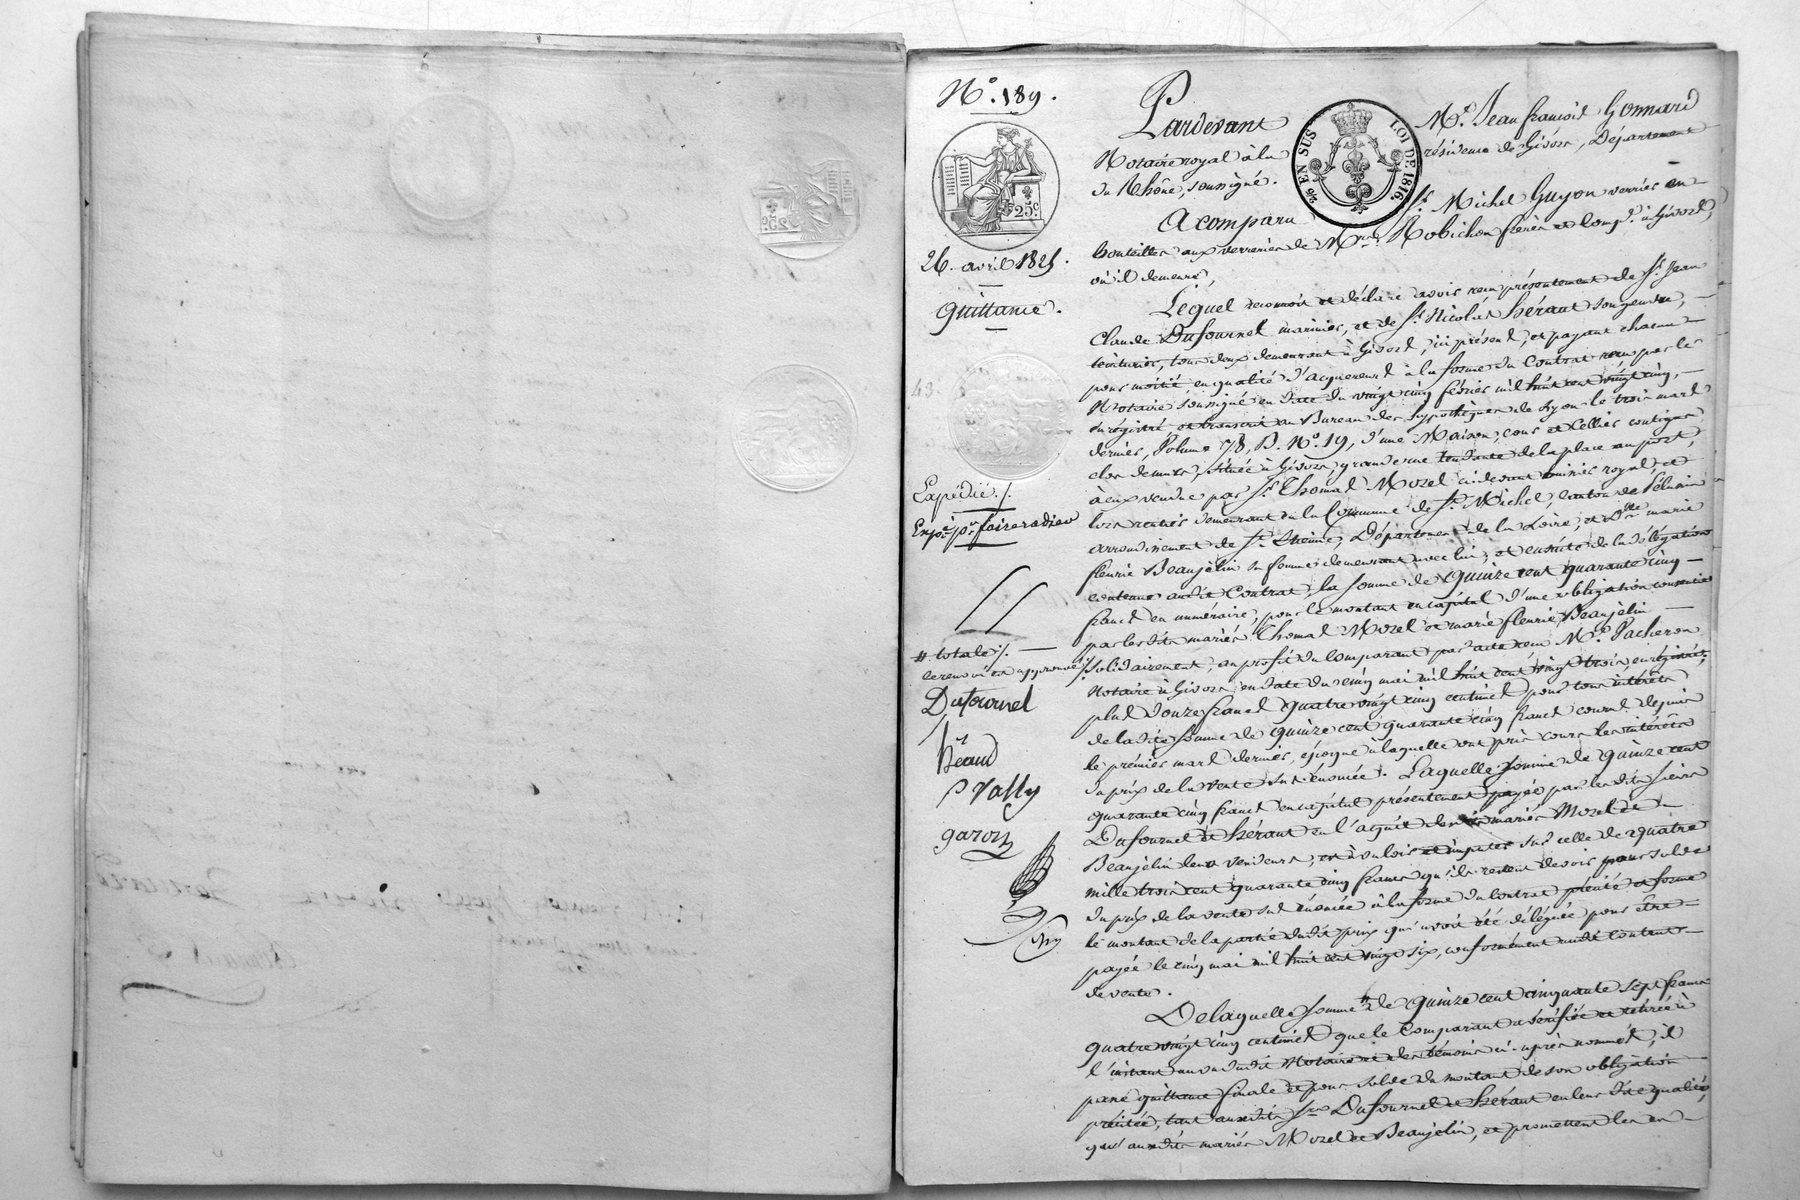 N.º 189.
25.c
26. avril 1825.
Quittance.
43.
Expédié ./.
# totale ./.
ce renvoi est approuvé ./.
Dufournel
héraud
Vally
garon
Pardevant Mᵉ. Jean françois Gonnard
2/10 EN SUS LOI DE 1816.
Notaire royal à la résidence de Givors, Département
du Rhône, soussigné.
A comparu Sʳ. Michel Guyon verrier en
bouteilles aux verreries de Mrs. Robichon frères et Comp.ᵉ à Givors,
où il demeure,
Lequel reconnoit et déclare avoir reçu présentement de Sʳ. Jean
Claude Dufournel marinier, et de Sʳ. Nicolas héraut son gendre,
teinturier, tous deux demeurant à Givors, ici présens, et payant chacun
pour moitié en qualité d'acquereurs à la forme du Contrat reçu par le
Notaire soussigné en date du vingt cinq février mil huit cent vingt cinq,
enregistré, et transcrit au Bureau des hypothèques de Lyon le trois mars
dernier, Volume 78, D. N.º 19, d'une Maison, cour et Cellier contigus
clos de murs, située à Givors, grande rue tendante de la place au port,
à eux vendue par Sʳ. Thomas Mozel ci-devant huissier royal, et
lors rentier demeurant en la Commune de Sᵗ. Michel, Canton de Pélussin
arrondissement de Sᵗ. Etienne, Département de la Loire, et Dlle marie
fleurie Beaujelin sa femme demeurant avec lui, et ensuite de la délégation
contenue audit Contrat, la somme de quinze cent quarante cinq
francs en numéraire, pour le montant en capital d'une obligation consentie
par lesdits mariés Thomas Mozel et marie fleurie Beaujelin
solidairement, au profit du comparant par acte reçu Mᵉ. Pacheron
Notaire à Givors, en date du cinq mai mil huit cent vingt trois, enregistré,
plus douze francs quatre vingt cinq centimes pour tous intérêts
de ladite somme de quinze cent quarante cinq francs courus depuis
le premier mars dernier, époque à laquelle ont pris cours les intérêts
du prix de la vente sus énoncée. Laquelle somme de quinze cent
quarante cinq francs en capital présentement payée par lesdits sieurs
Dufournel et héraut en l'acquit des mariés Mozel et
Beaujelin leurs vendeurs, est à valoir et imputer sur celle de quatre
mille trois cent quarante cinq francs qu'ils restent devoir pour solde
du prix de la vente sus énoncée à la forme du Contrat précité et forme
le montant de la partie dudit prix qui avoit été déléguée pour être
payée le cinq mai mil huit cent vingt six, conformément audit Contrat
de vente.
De laquelle somme # de quinze cent cinquante sept francs
quatre vingt cinq centimes que le Comparant a vérifiée et retirée à
l'instant au vu dudit Notaire et des témoins ci-après nommés, il
passe quittance finale et pour solde du montant de son obligation
précitée, tant auxdits Srs Dufournel et héraut en leur dite qualité,
qu'auxdits mariés Mozel et Beaujelin, et promettent les en